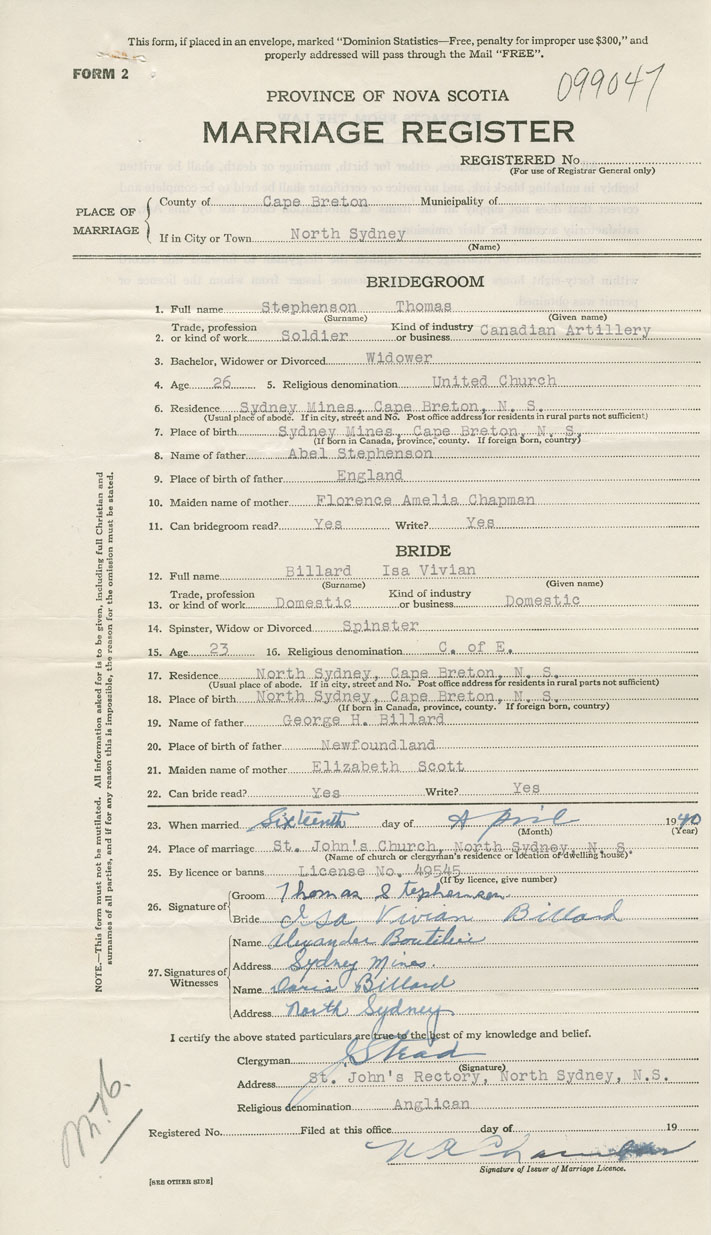 This form, if placed in an envelope, marked "Dominion Statistics—Free, penalty for improper use $300," and
properly addressed will pass through the Mail "FREE".
FORM 2
099047
PROVINCE OF NOVA SCOTIA
MARRIAGE REGISTER
REGISTERED No.
(For use of Registrar General only)
PLACE OF MARRIAGE
County of Cape Breton Municipality of
If in City or Town North Sydney
(Name)
BRIDEGROOM
1. Full name Stephenson Thomas
(Surname) (Given name)
2. Trade, profession or kind of work Soldier Kind of industry or business Canadian Artillery
3. Bachelor, Widower or Divorced Widower
4. Age 26 5. Religious denomination United Church
6. Residence Sydney Mines, Cape Breton, N. S.
(Usual place of abode. If in city, street and No. Post office address for residents in rural parts not sufficient)
7. Place of birth Sydney Mines, Cape Breton, N. S.
(If born in Canada, province, county. If foreign born, country)
8. Name of father Abel Stephenson
9. Place of birth of father England
10. Maiden name of mother Florence Amelia Chapman
11. Can bridegroom read? Yes Write? Yes
BRIDE
12. Full name Billard Isa Vivian
(Surname) (Given name)
13. Trade, profession or kind of work Domestic Kind of industry or business Domestic
14. Spinster, Widow or Divorced Spinster
15. Age 23 16. Religious denomination C. of E.
17. Residence North Sydney, Cape Breton, N. S.
(Usual place of abode. If in city, street and No. Post office address for residents in rural parts not sufficient)
18. Place of birth North Sydney, Cape Breton, N. S.
(If born in Canada, province, county. If foreign born, country)
19. Name of father George H. Billard
20. Place of birth of father Newfoundland
21. Maiden name of mother Elizabeth Scott
22. Can bride read? Yes Write? Yes
23. When married Sixteenth day of April 1940
(Month) (Year)
24. Place of marriage St. John's Church, North Sydney, N. S.
(Name of church or clergyman's residence or location of dwelling house)
25. By licence or banns License No. 49545
(If by licence, give number)
26. Signature of
Groom Thomas Stephenson
Bride Isa Vivian Billard
27. Signatures of Witnesses
Name Alexander Boutilier
Address Sydney Mines.
Name Doris Billard
Address North Sydney
I certify the above stated particulars are true to the best of my knowledge and belief.
Clergyman J Stead
(Signature)
Address St. John's Rectory, North Sydney, N.S.
Religious denomination Anglican
Registered No. Filed at this office day of 19
Signature of Issuer of Marriage Licence.
[SEE OTHER SIDE]
NOTE.—This form must not be mutilated. All information asked for is to be given, including full Christian and
surnames of all parties, and if for any reason this is impossible, the reason for the omission must be stated.